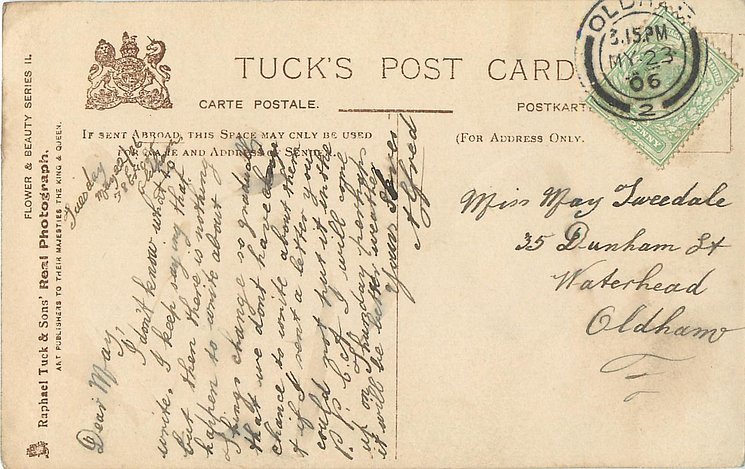 TUCK'S POST CARD
CARTE POSTALE.
POSTKARTE
IF SENT ABROAD, THIS SPACE MAY ONLY BE USED
FOR NAME AND ADDRESS OF SENDER.
(FOR ADDRESS ONLY.
OLDHAM
3.15.PM
MY 23
06
2
Miss May Tweedale
35 Dunham St
Waterhead
Oldham
Tuesday
May 22
Dear May,
I don't know what to
write. I keep saying that
but then there is nothing
happen to write about
Things change so gradually
that we don't have
chance to write about them
& if I sent a letter you
could not put it in the
p.p.c. of I will come
up on Thursday perhaps
it will be better weather
Yours
Alfred
FLOWER & BEAUTY SERIES II.
Raphael Tuck & Sons' Real Photograph.
ART PUBLISHERS TO THEIR MAJESTIES THE KING & QUEEN.